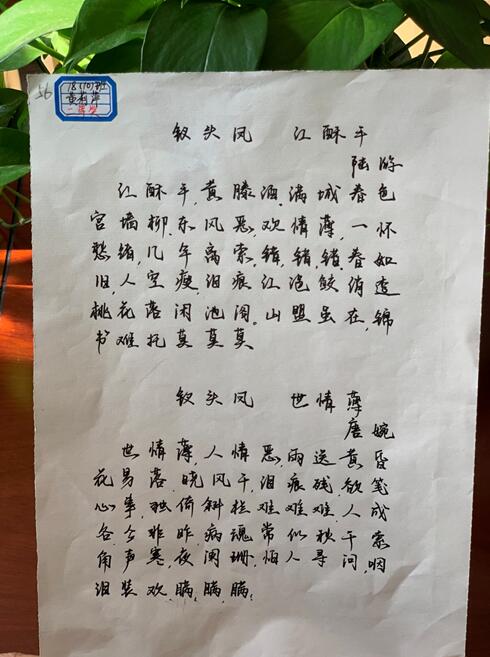 56
钗头凤 江酥手
陆游
江酥手,黄藤酒,满城春色
宫墙柳,东风恶,欢情薄,一怀
愁绪,几年离索,错,错,错,春如
旧人空瘦,泪痕红浥鲛绡透
桃花落闲池阁。山盟虽在,锦
书难托莫莫莫
钗头凤 世情薄
唐婉
世情薄,人情恶,雨送黄昏
花易落,晓风干,泪痕残,欲笺
心事,独倚斜栏难难难,人成
各今非昨,病魂常似秋千索
角声寒,夜阑珊,怕人寻问,咽
泪装欢,瞒,瞒,瞒,